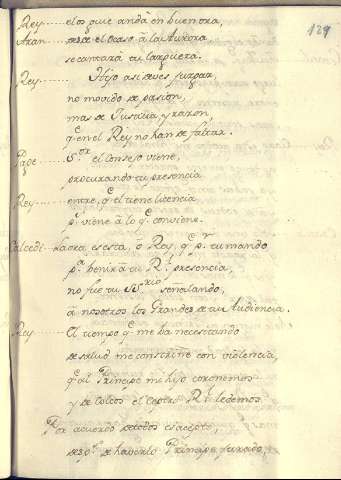 129
Rey ..... el os guie anda en buenora,
Aran ..... desde el Ocaso à la Aurora
se cantarà tu largueza.
Rey ..... Hijo asi deves juzgar,
no movido de pasion,
mas de Justicia y razon,
q.e en el Rey no han de faltar.
Page ..... S.or el Consejo viene,
procurando tu presencia
Rey ..... entre, q.e el tiene licencia
p.a viene à lo q.e conviene.
Calcedi. hora es esta, ò Rey, q.e p.r tu mando
p.a benir à tu R.l presencia,
no fue tu señalando,
à nosotros los Grandes de tu Audiencia.
Rey ..... El tiempo q.e me ha necesitando
de salud me constriñe con violencia,
q.e al Principe mi hijo coronemos
y de todos el ceptro R.l le demos.
Por acuerdo de todos es acepto,
desp.s de haverlo Principe jurado,